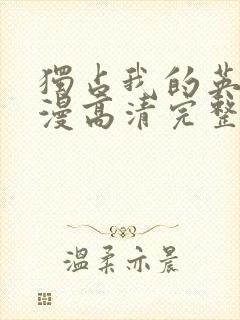 獨占我的英
漫高清完整
溫柔亦晨